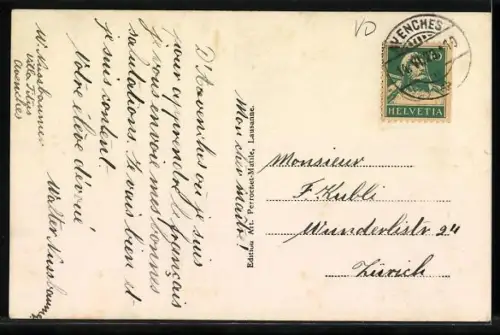 VD
AVENCHES
HELVETIA
Mon cher maître!
D'Avenches où je suis
pour apprendre le français
je vous envoie mes bonnes
salutations. Je vais bien et
je suis content.
Votre élève dévoué
Walter Nussbaumer
W. Nussbaumer
Avenches
Edition Art. Perrochet-Matile, Lausanne.
Monsieur
F. Kubli
Wunderlistr 24
Zürich